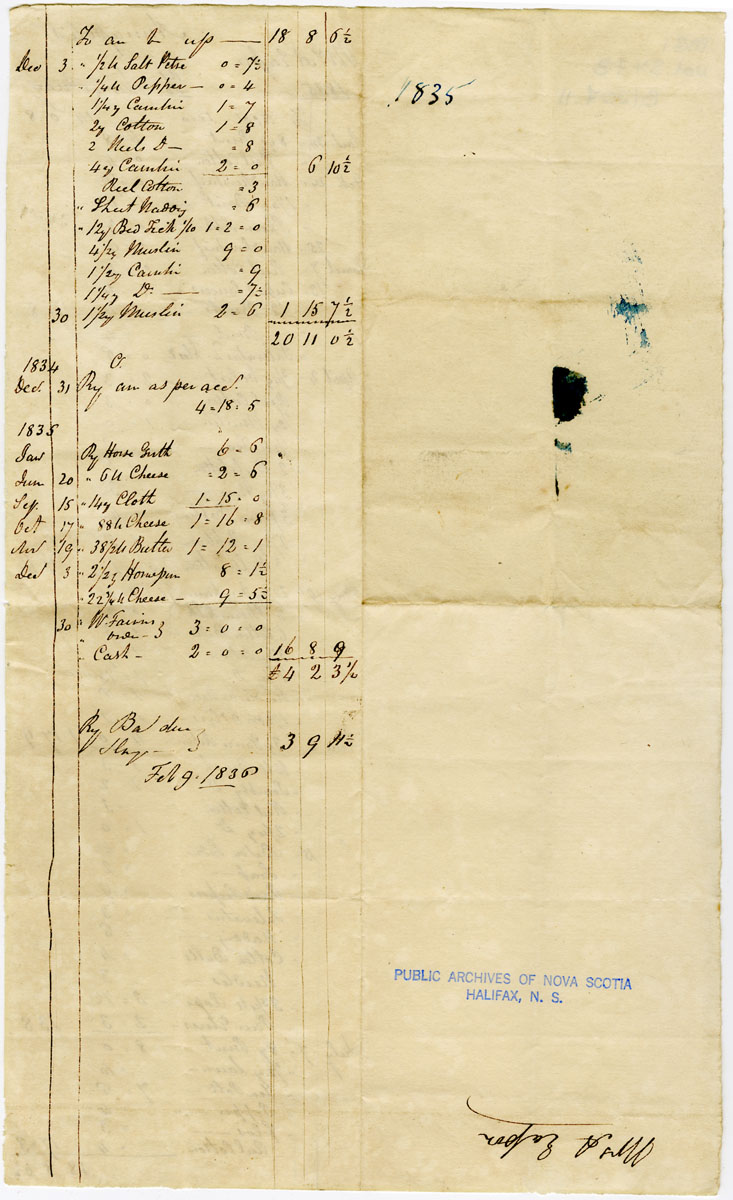 To am b up — 18 8 6½
Dec 3 " ½ lb Salt Petre 0=7½
" ¼ lb Pepper — 0=4
1¼ y Cambric 1=7
2y Cotton 1=8
2 Reels Do — =8
4 y Cambric 2=0 6 10½
Reel Cotton =3
" Sheet Wadding =6
" 12y Bed Tick 1/10 1=2=0
4½ y Muslin 9=0
1½ y Cambric =9
1¼ y Do — =7½
30 1½ y Muslin 2=6 1 15 7½
20 11 0½
1834
Decr 31 By am as per acct
4=18=5
1835
Jan By Horse Girth 6=6
Jun 20 " 6 lb Cheese =2=6
Sep 15 " 14y Cloth 1=15=0
Oct 17 " 88 lb Cheese 1=16=8
Nov 19 " 38½ lb Butter 1=12=1
Dec 3 " 2½ y Homespun 8=1½
" 22¾ lb Cheese — 9=5½
30 " W order — 3=0=0
" Cash — 2=0=0 16 8 9
£4 2 3½
By Bal due 3 9 11½
Feb 9. 1836
1835
PUBLIC ARCHIVES OF NOVA SCOTIA
HALIFAX, N. S.
Mrs A